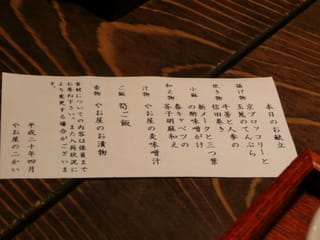 本日のお献立
揚げ物 京ブロッコリーと
玉葱のてんぷら
炊き物 牛蒡と人参の
信田巻き
小鉢 新メークと三つ葉
の酢味噌がけ
和え物 春キャベツの
芥子胡麻和え
汁物 やお屋の麦味噌汁
ご飯 筍ご飯
香物 やお屋のお漬物
食材についての内容は係員まで
お尋ね下さい。また入荷状況に
より変更する場合がございます
平成二十年四月
やお屋の二かい